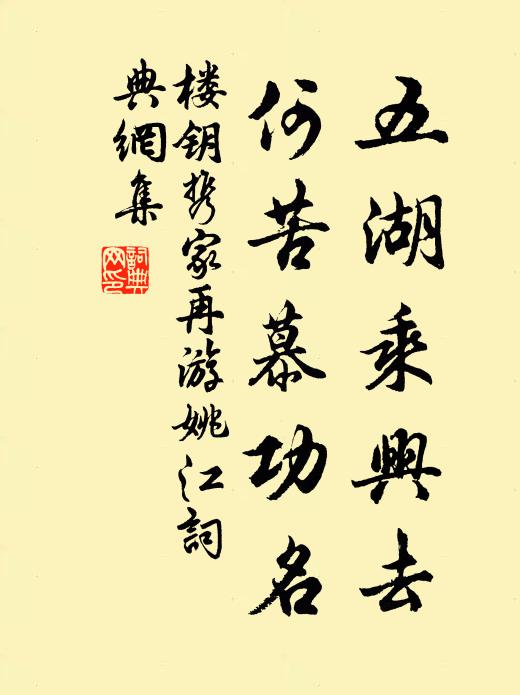 五湖乘興去
何苦慕功名
楼钥携家再游姚江詞
典網集
詞典网印